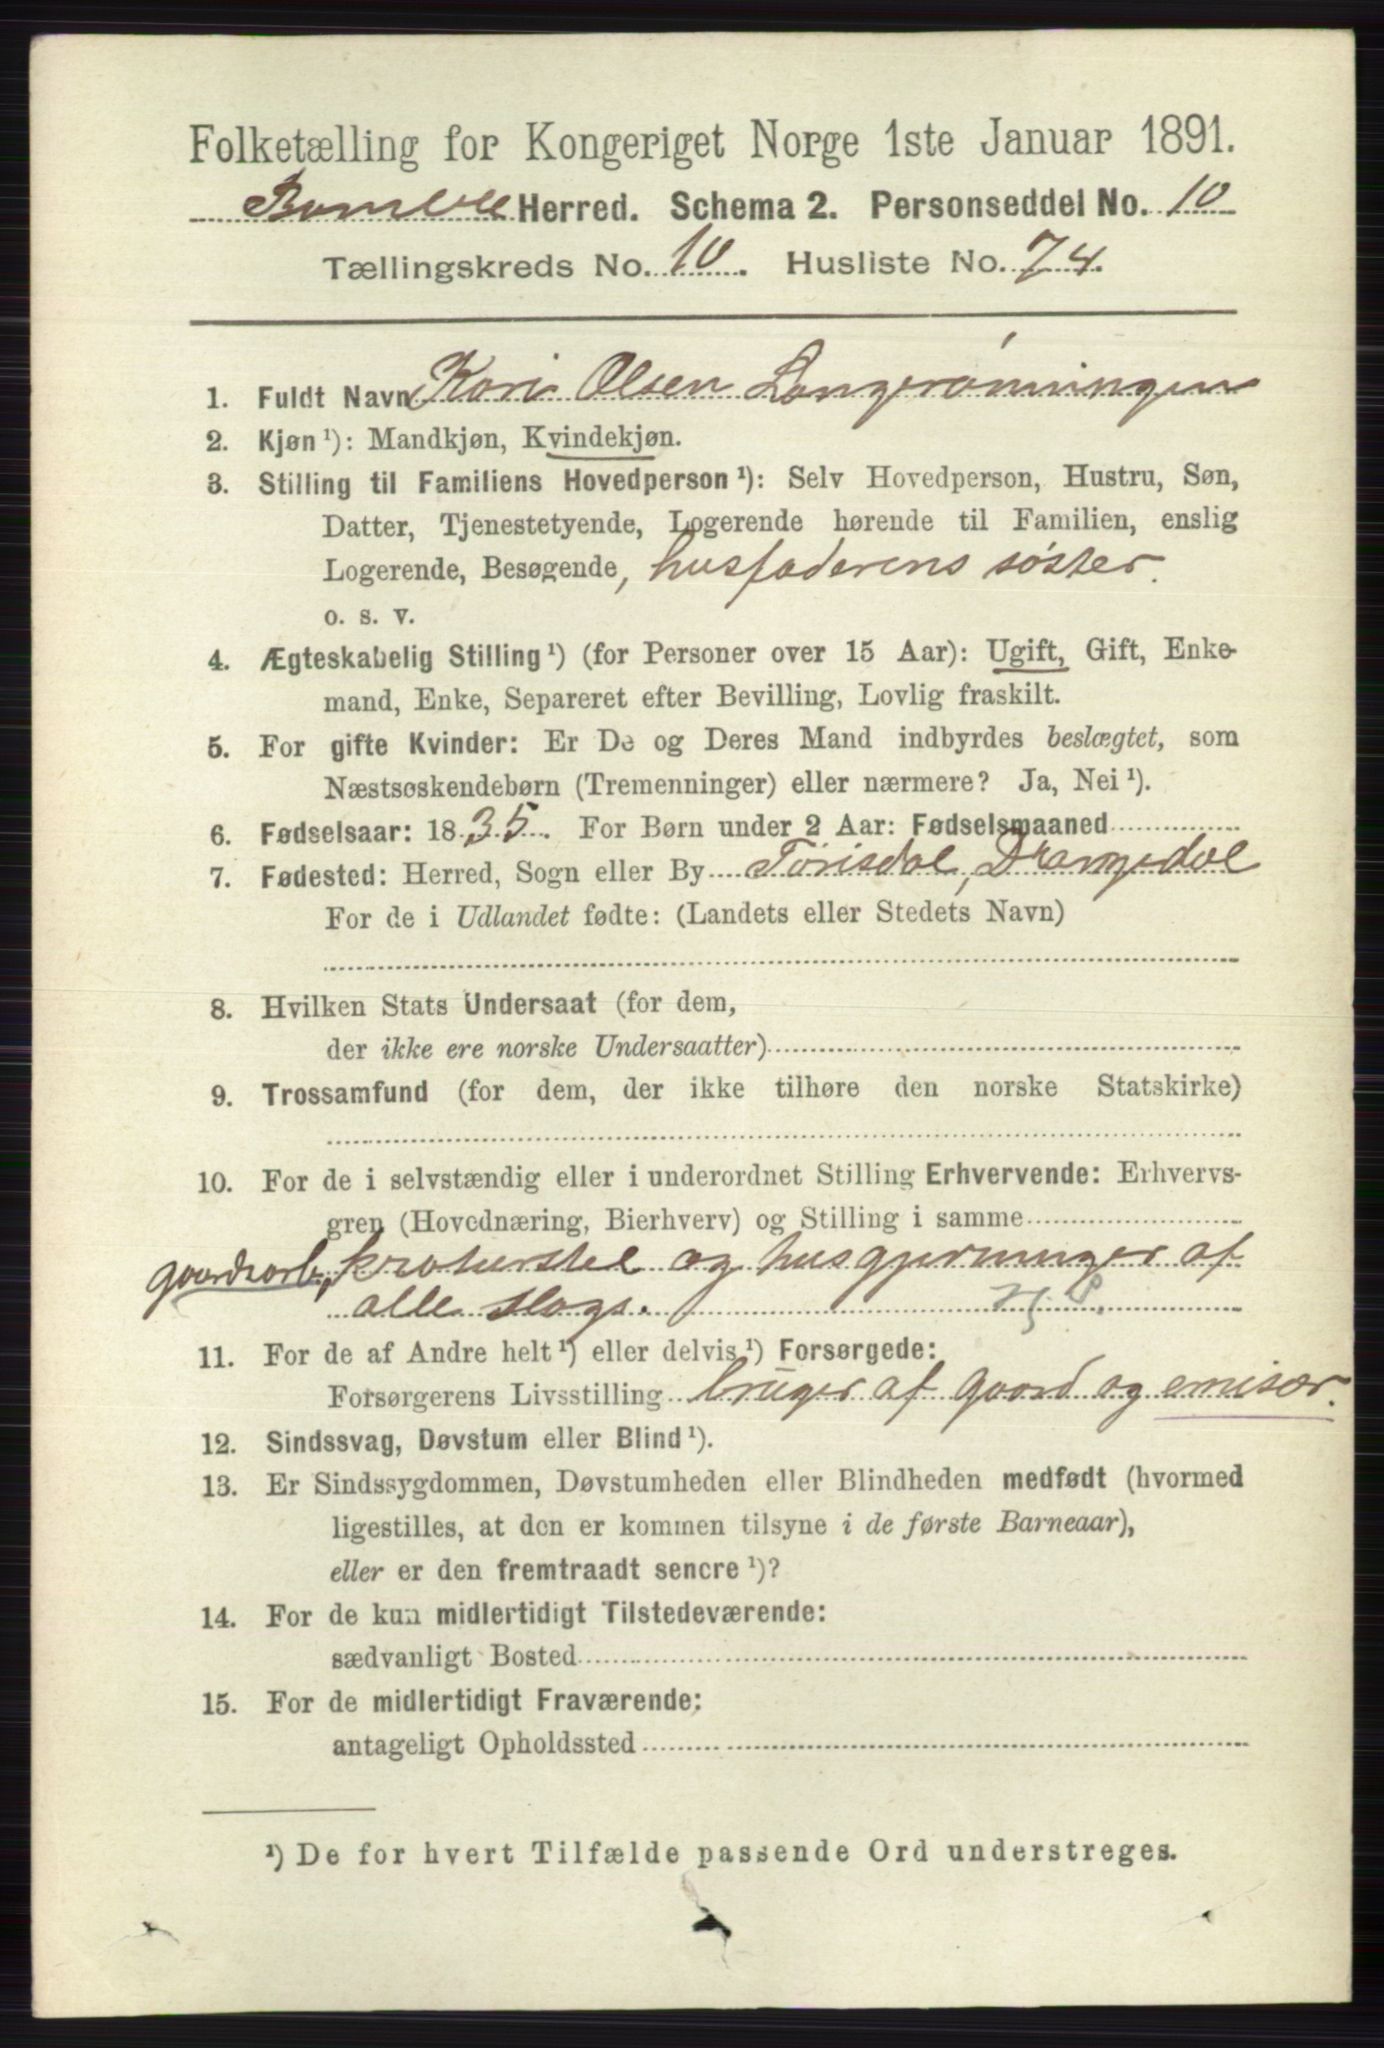 Folketælling for Kongeriget Norge 1ste Januar 1891.
Bamble Herred. Schema 2. Personseddel No. 10
Tællingskreds No. 10. Husliste No. 74.
1. Fuldt Navn Kari Olsen Langerønningen
2. Kjøn ¹): Mandkjøn, Kvindekjøn.
3. Stilling til Familiens Hovedperson ¹): Selv Hovedperson, Hustru, Søn,
Datter, Tjenestetyende, Logerende hørende til Familien, enslig
Logerende, Besøgende, husfaderens søster.
o. s. v.
4. Ægteskabelig Stilling ¹) (for Personer over 15 Aar): Ugift, Gift, Enke-
mand, Enke, Separeret efter Bevilling, Lovlig fraskilt.
5. For gifte Kvinder: Er De og Deres Mand indbyrdes beslægtet, som
Næstsøskendebørn (Tremenninger) eller nærmere? Ja, Nei ¹).
6. Fødselsaar: 1835. For Børn under 2 Aar: Fødselsmaaned
7. Fødested: Herred, Sogn eller By Tørisdal, Drangedal
For de i Udlandet fødte: (Landets eller Stedets Navn)
8. Hvilken Stats Undersaat (for dem,
der ikke ere norske Undersaatter)
9. Trossamfund (for dem, der ikke tilhøre den norske Statskirke)
10. For de i selvstændig eller i underordnet Stilling Erhvervende: Erhvervs-
gren (Hovednæring, Bierhverv) og Stilling i samme
gaardsarb, kraturstel og husgjerninger af
alle slags.
11. For de af Andre helt ¹) eller delvis ¹) Forsørgede:
Forsørgerens Livsstilling bruger af gaard og emisær.
12. Sindssvag, Døvstum eller Blind ¹).
13. Er Sindssygdommen, Døvstumheden eller Blindheden medfødt (hvormed
ligestilles, at den er kommen tilsyne i de første Barneaar),
eller er den fremtraadt senere ¹)?
14. For de kun midlertidigt Tilstedeværende:
sædvanligt Bosted
15. For de midlertidigt Fraværende:
antageligt Opholdssted
¹) De for hvert Tilfælde passende Ord understreges.